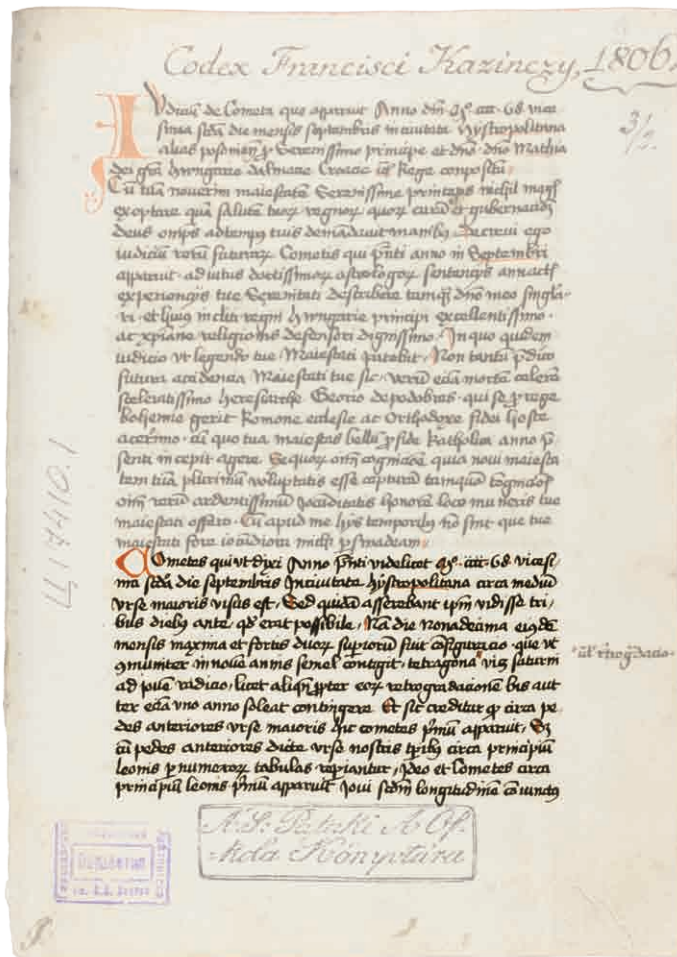 Codex Francisci Kazinczy, 1806.
3/9.
Iudiciũ de Cometa que apparuit Anno dñi M° cccc 68 vice
sima scđa die mensis septembris in civitate hystropolitana
alias posonien̄ p Serenissimo principe et dño dño Mathia
dei grã hungarie dalmacie Croacie Rege conpositũ
Cũ tuã noverim maiestatẽ Serenissime princeps nichil magis
exoptare quã salutẽ tuoꝝ regnoꝝ quoꝝ curã et gubernacõꝫ
deus omps ad tempꝰ tuis demandavit manibꝰ Decrevi ego
iudiciũ rerũ futuraꝝ Cometis qui pñti anno in Septembri
apparuit ad intus doctissimoꝝ astrologoꝝ sentencijs
experiencijs tue Serenitati describere tamqꝫ dño meo singla
ri et huius incliti regni hungarie principi excellentissimo
ac xpiane religionis defensori dignissimo In quo quidem
iudicio vt legendo tue Maiestati patebit Non tantũ pdico
futura accidencia Maiestati tue sic verũ eciã mortẽ celerẽ
sceleratissimo heresiarche Georio de podobras qui se p rege
bohemie gerit Romone ecclesie ac Orthodoxe fidei hoste
acerimo cũ quo tua maiestas bellũ p fide Katholica anno p̃
senti incepit agere Se quoꝝ oĩm cognicõe quia novi maiesta
tem tuã plurimum voluptatis esse capturã tamquã
oĩm rerũ ardentissimũ Jocuditatis honorẽ loco muneris tue
maiestati offaro Cũ apud me hijs temporibꝰ nõ sint que tue
maiestati fore iocũdiora michi psuadeam
Cometes qui vt dixi Anno pñti videlicet M° cccc 68 vicesi
ma scđa die septembris In civitate hystropolitana circa mediũ
vrse maioris visus est Sed quidã asserebant ipm vidisse tri
bus diebꝰ ante qd erat possibile Nã die nonadecima eiusdẽ
mensis maxima et fortis duoꝝ supiorũ fuit cõfiguracio que vt
cõmuniter in nove annis semel contigit tetragona viꝫ saturni
ad jouẽ radio licet aliqñ ppter eoꝝ retrogradacionẽ bis aut
ter eciã vno anno soleat contingere Et sic creditur qꝫ circa pe
des anteriores vrse maioris hic cometes pmũ apparuit Sꝫ
cũ pedes anteriores dicte vrse nostris tpibꝰ circa principiũ
leonis p numeroꝝ tabulas repiantur Ideo et Cometes circa
principiũ leonis pmũ apparuit Joui scdm longitudinẽ cõiunctus
vĺ rtrogdacio
A. S. Pataki A Of.
Kola Könyvtára